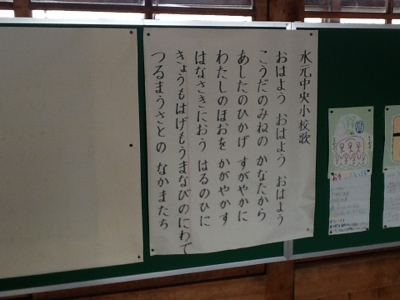 水元中央小校歌
おはよう おはよう おはよう
こうだのみねの かなたから
あしたのひかげ すがやかに
わたしのほおを かがやかす
はなさきにおう はるのひに
きょうもはげもうまなびのにわで
つるまうさとの なかまたち